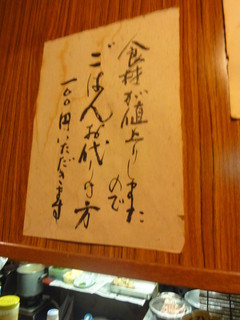 食材が値上りしました
ので
ごはんお代りの方
一〇〇円いただきます